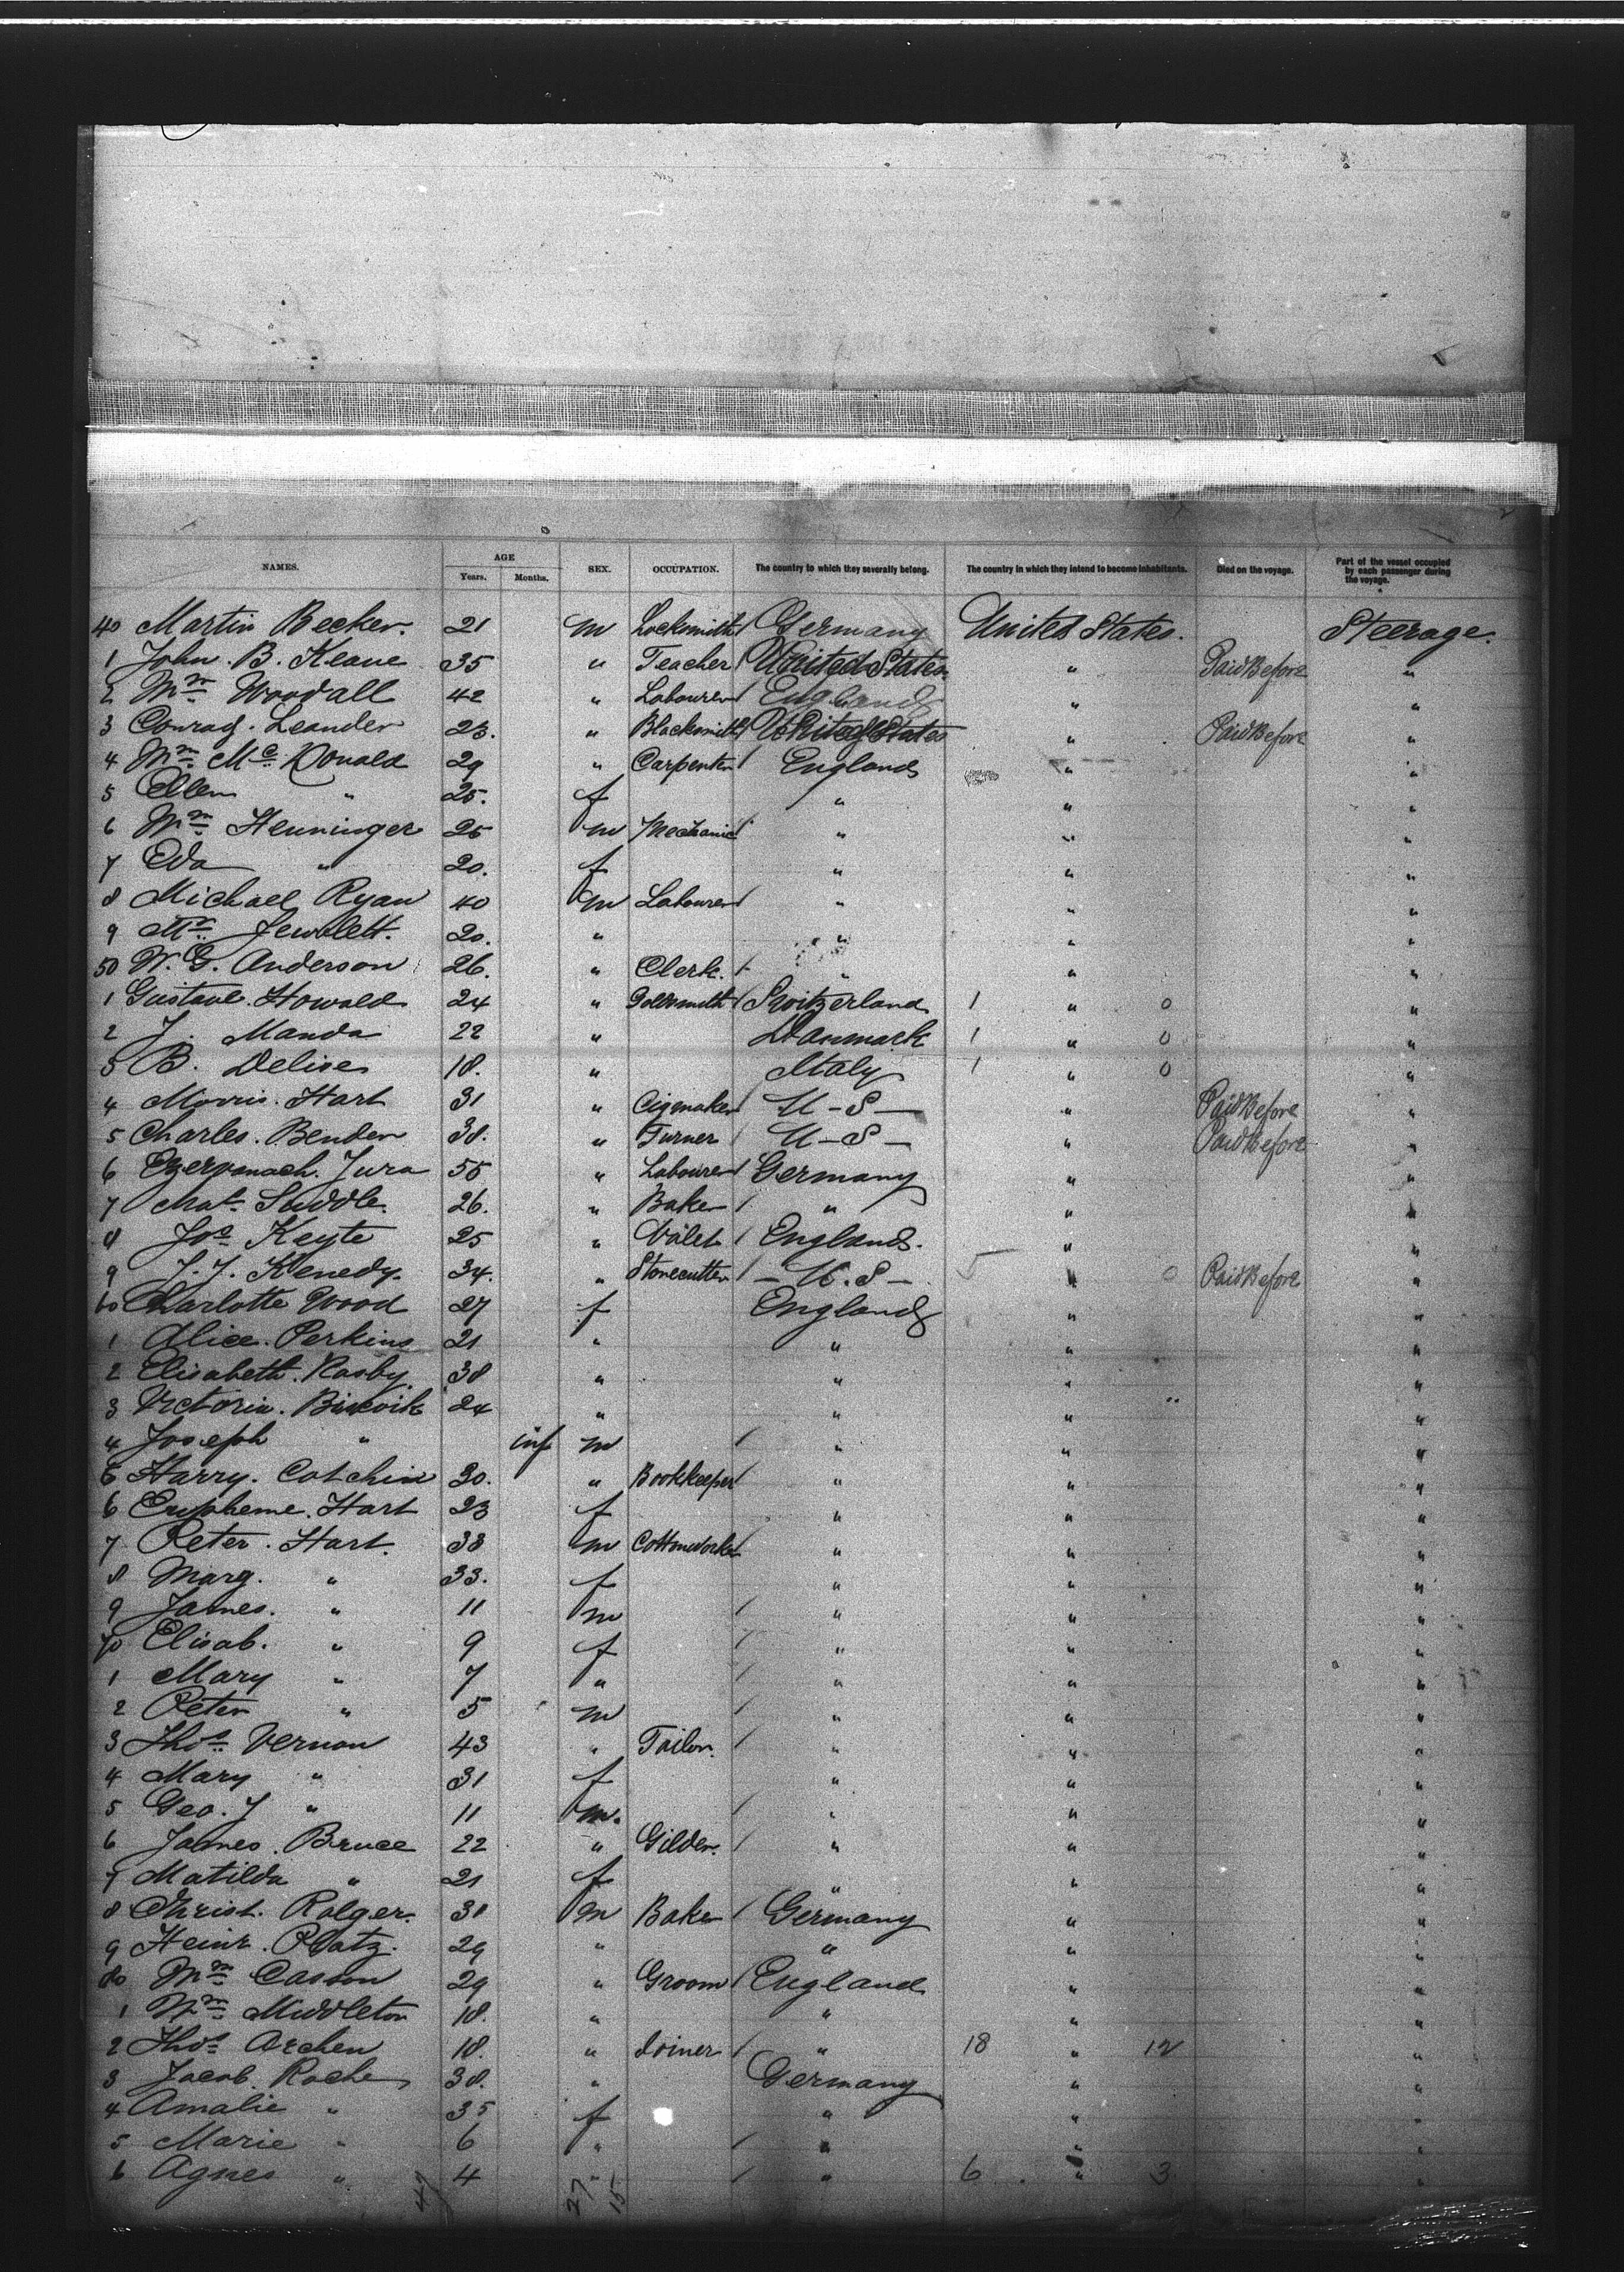 NAMES. AGE Years. Months. SEX. OCCUPATION. The country to which they severally belong. The country in which they intend to become inhabitants. Died on the voyage. Part of the vessel occupied by each passenger during the voyage.
40 Martin Becker. 21 m Locksmith / Germany United States. Steerage.
1 John. B. Keane 35 " Teacher / United States " Paid Before "
2 Wm Woodall 42 " Labourer / England " "
3 Conrad. Leander 23. " Blacksmith / United States " Paid Before "
4 Wm Mc Donald 29 " Carpenter / England " "
5 Ellen " 25. f " " "
6 Wm Henninger 25 m Mechanic " " "
7 Eda " 20. f " " "
8 Michael Ryan 40 m Labourer / " " "
9 Mr Jewlett. 20. " " " "
50 W. G. Anderson 26. " Clerk. / " " "
1 Gustave. Howald 24 " Goldsmith / Switzerland 1 " 0 "
2 J. Manda 22 " Danmark 1 " 0 "
3 B. Delise 18. " Italy 1 " 0 "
4 Morris. Hart 31 " Cigmaker / U-S- " Paid Before "
5 Charles. Bender 38. " Turner / U-S- " Paid Before "
6 Jura 55 " Labourer / Germany " "
7 Mat. Suddle. 26. " Baker / " " "
8 Jos Keyte 25 " Valet / England. " "
9 J. J. Kenedy. 34. " Stonecutter / - U.S- 5 " 0 Paid Before "
60 Charlotte Wood 27 f England " "
1 Alice. Perkins 21 " " " "
2 Elisabeth. Rasby 38 " " " "
3 Victoria. 24 " " " "
4 Joseph " inf m / " " "
5 Harry. Cotchin 30. " Bookkeeper / " " "
6 Eupheme. Hart 23 f " " "
7 Peter. Hart. 33 m Cottonworker / " " "
8 Marg. " 33. f " " "
9 James. " 11 m / " " "
70 Elisab. " 9 f / " " "
1 Mary " 7 " / " " "
2 Peter " 5 m / " " "
3 Thos Vernon 43 " Tailor. / " " "
4 Mary " 31 f " " "
5 Geo. J " 11 m. / " " "
6 James. Bruce 22 " Gilder. / " " "
7 Matilda " 21 f " " "
8 Christ. Rolger. 31 m Baker / Germany " "
9 Heinr. Platz. 29 " " " "
80 Wm Casson 29 " Groom / England " "
1 Wm Middleton 18. " " " "
2 Thos Archer 18. " Joiner / " 18 " 12 "
3 Jacob. Roche 38. " Germany " "
4 Amalie " 35 f " " "
5 Marie " 6 " / " " "
6 Agnes " 4 " / " 6 " 3 "
47 27 15